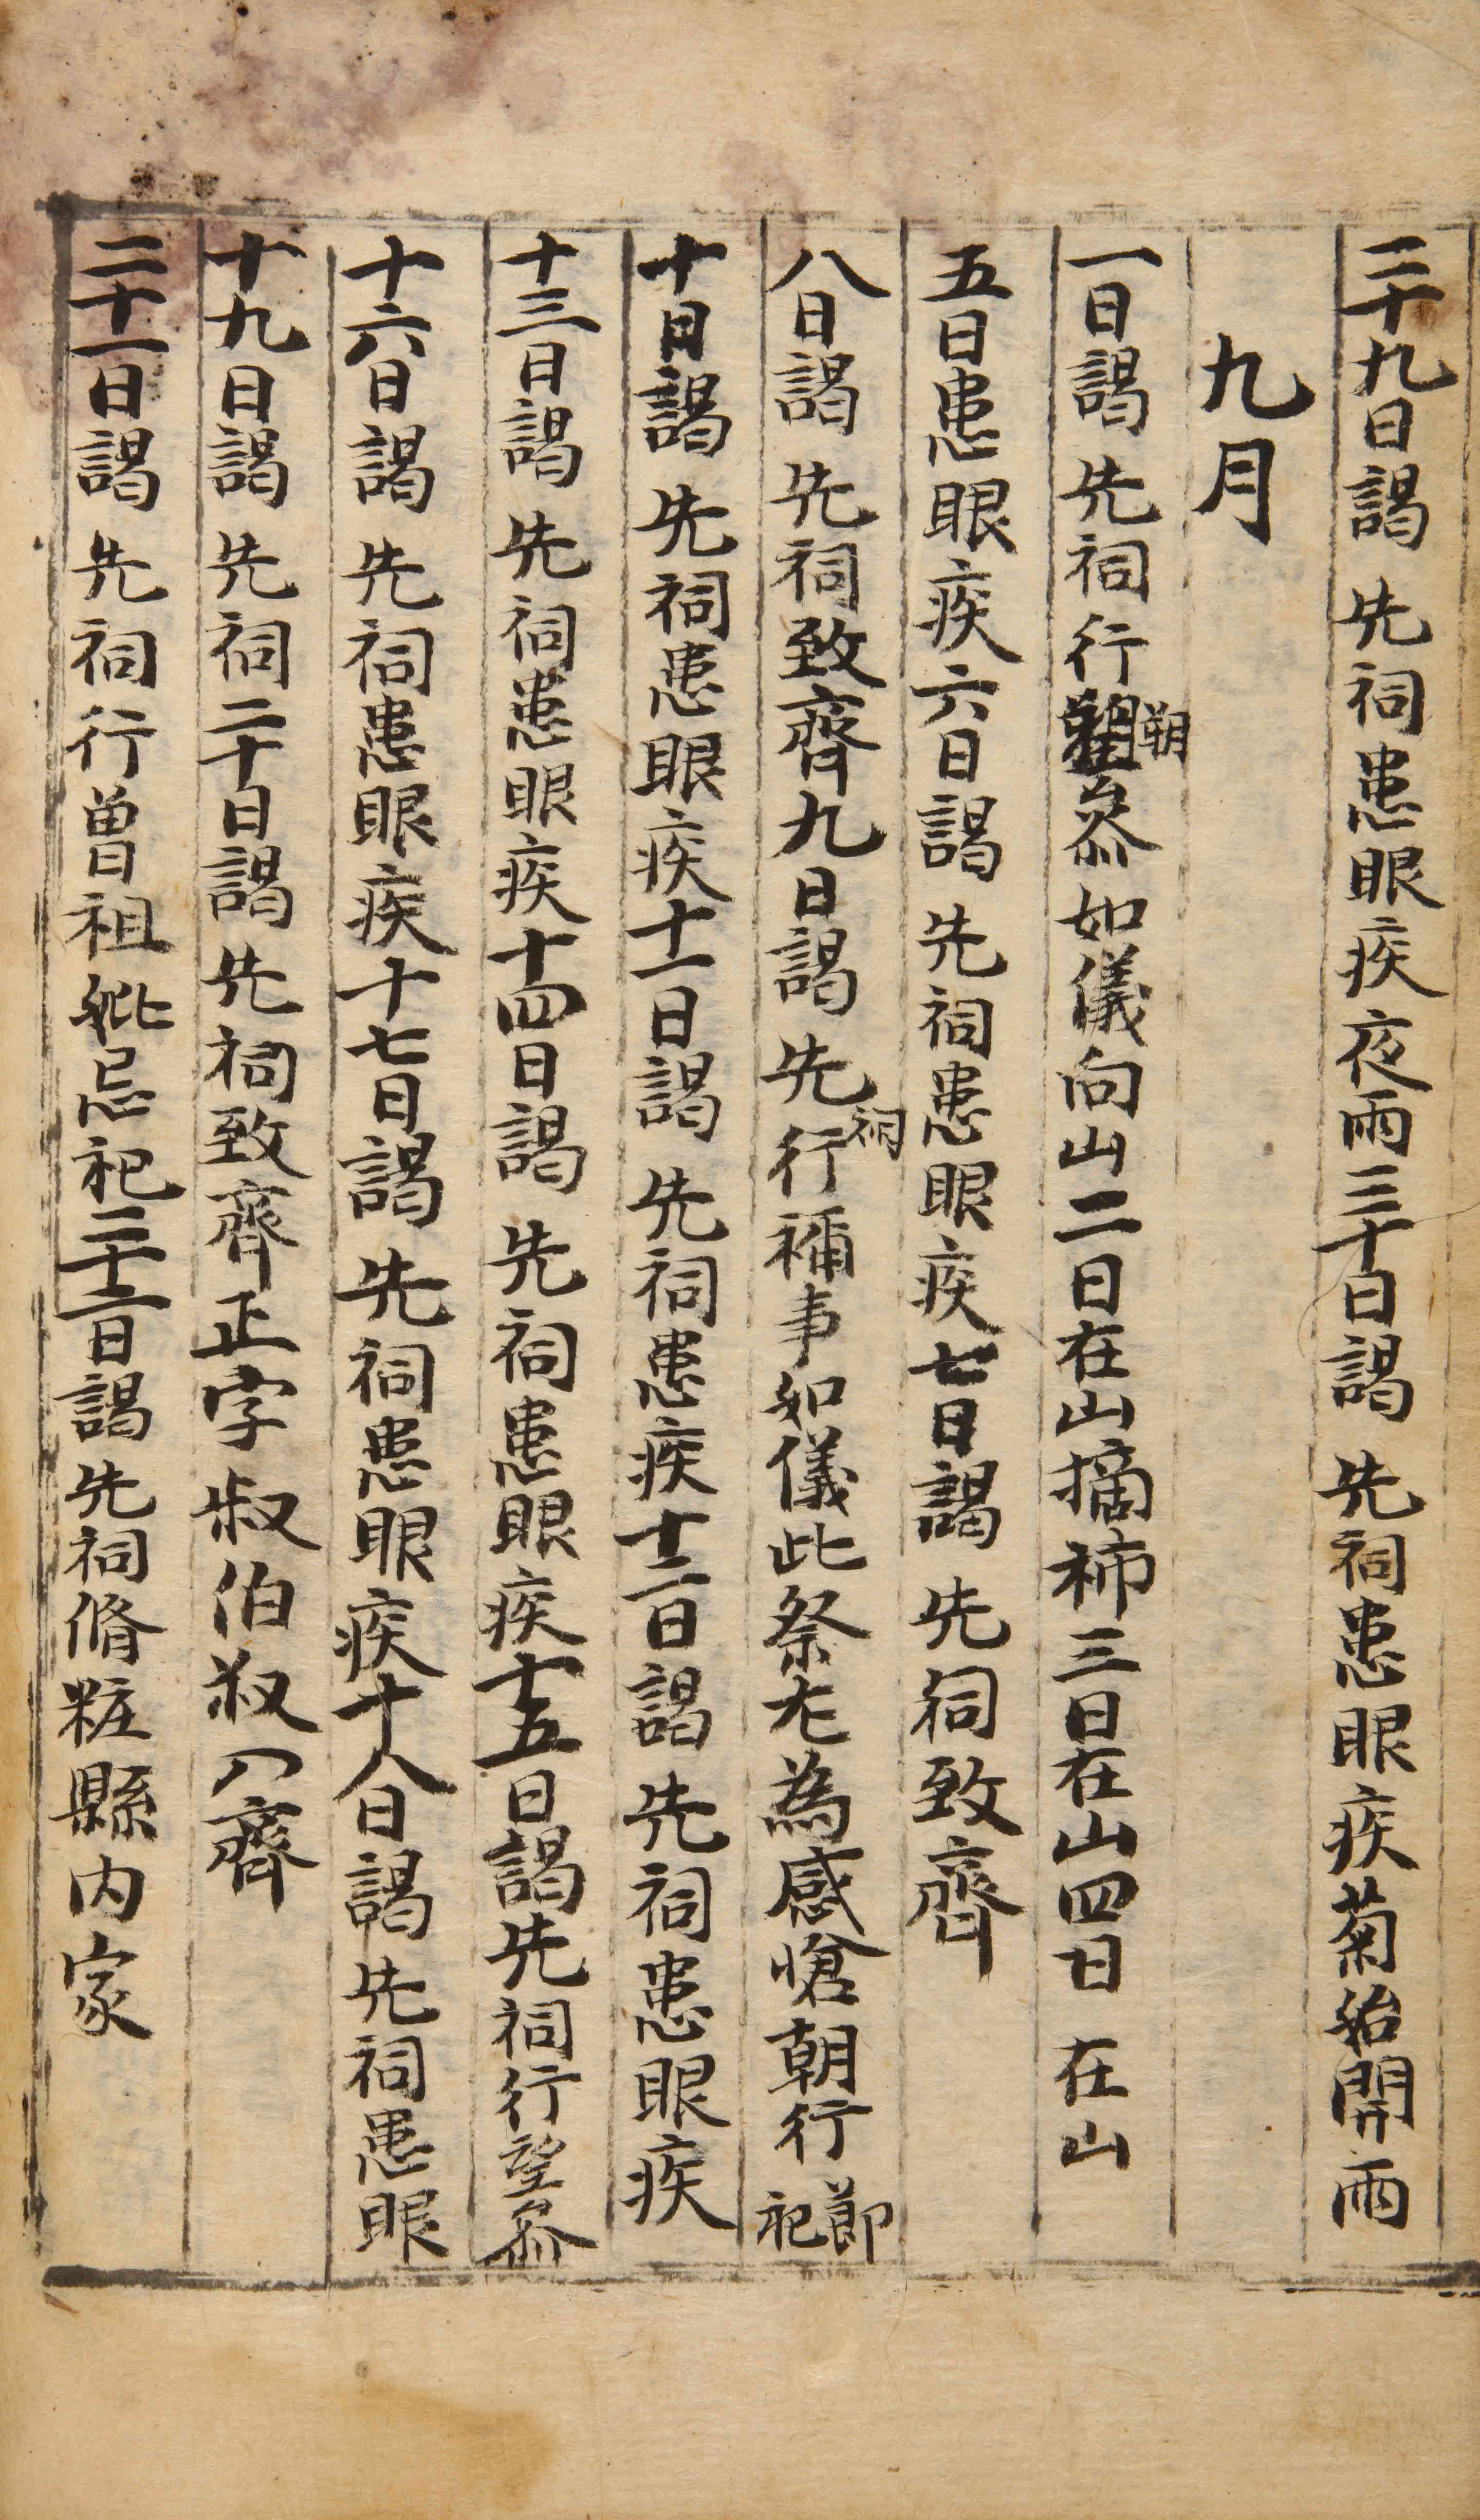 二十九日謁 先祠患眼疾夜雨三十日謁 先祠患眼疾菊始開雨
九月
一日謁 先祠行朔叅如儀向山二日在山摘柿三日在山四日 在山
五日患眼疾六日謁 先祠患眼疾七日謁 先祠致齊
八日謁 先祠致齊九日謁 先祠行禰事如儀此祭尤為感愴朝行節祀
十日謁 先祠患眼疾十一日謁 先祠患疾十二日謁 先祠患眼疾
十三日謁 先祠患眼疾十四日謁 先祠患眼疾十五日謁先祠行望叅
十六日謁 先祠患眼疾十七日謁 先祠患眼疾十八日謁先祠患眼
十九日謁 先祠二十日謁 先祠致齊正字叔伯叔入齊
二十一日謁 先祠行曾祖妣忌祀二十二日謁 先祠脩粧縣内家